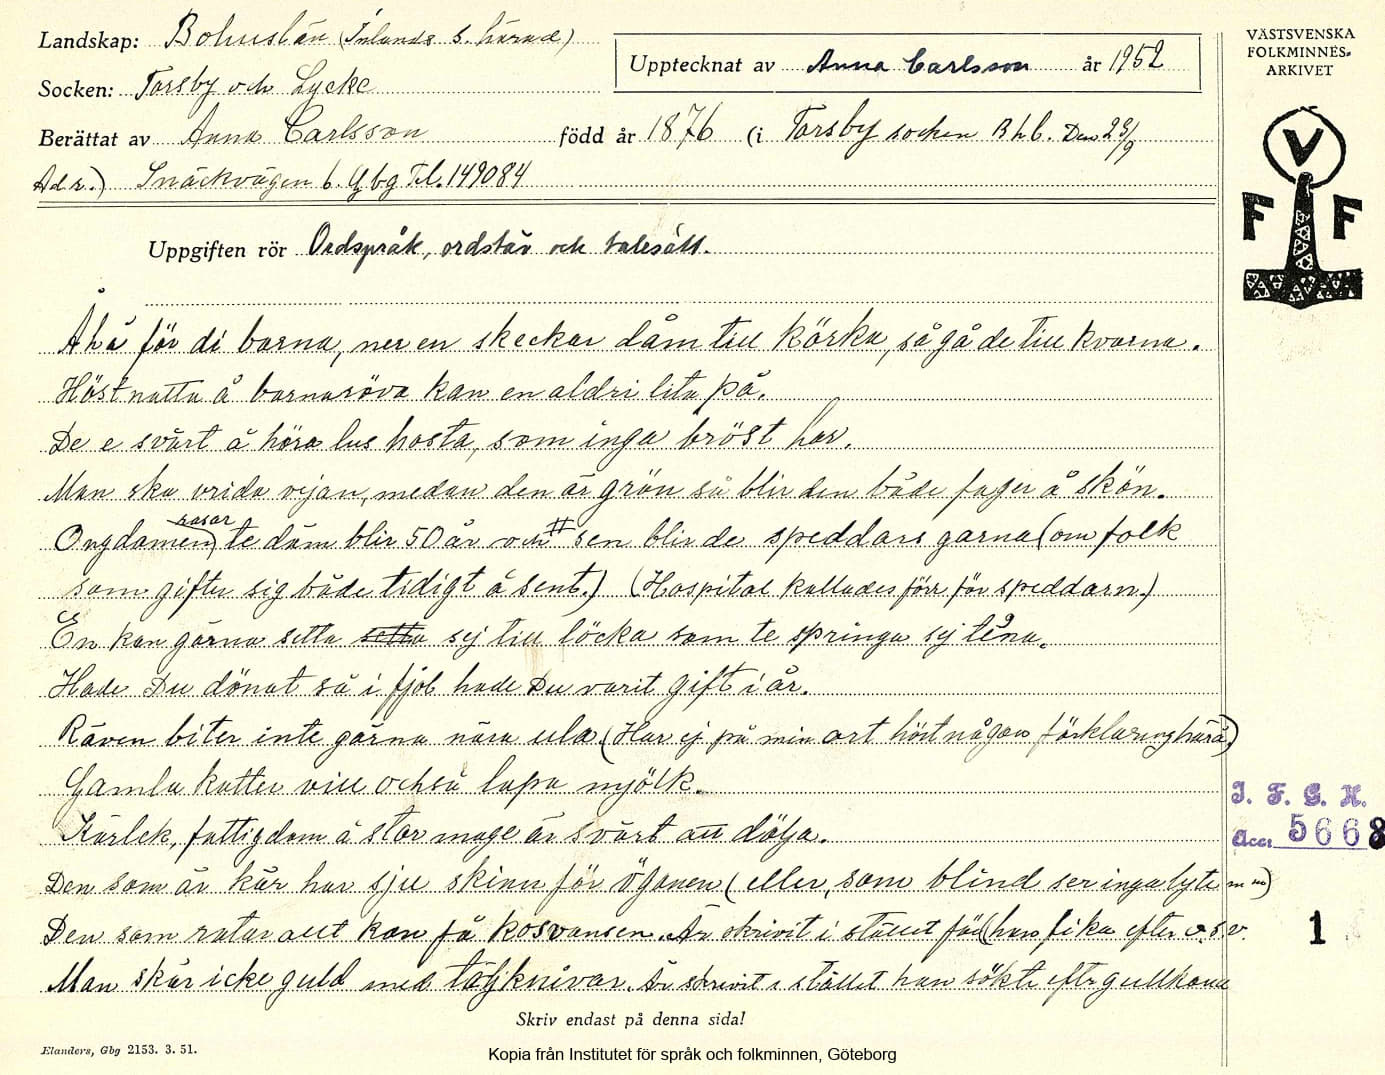 Landskap: Bohuslän (Inlands s. härad)
Upptecknat av Anna Carlsson år 1952
VÄSTSVENSKA
FOLKMINNES-
ARKIVET
Socken: Torsby och Lycke
Berättat av Anna Carlsson född år 1876 (i Torsby socken Bhl. Den 23/9
Adr.) Snäckvägen 6. Gbg Tel. 149084
V
F F
Uppgiften rör Ordspråk, ordstäv och talesätt.
Å hå för di barna, ner en skeckar dåm till körka, så gå de till kvarna.
Höstnatta å barnaröva kan en aldri lita på.
De e svårt å höra lus hosta, som inga bröst har.
Man ska vrida vijan, medan den är grön så blir den både fager å skön.
Ongdamen rasar te dåm blir 50 år och sen blir de speddars garna (om folk
som gifter sig både tidigt å sent.) (Hospital kallades förr för speddarn.)
En kan gärna setta setta sej till löcka som te springa sej te'na.
Hade Du dönat så i fjol hade Du varit gift i år.
Räven biter inte gärna nära ula. (Har ej på min ort hört någon förklaring härå)
Gamla katter vill också lapa mjölk.
Kärlek, fattigdom å stor mage är svårt att dölja.
Den som är kär har sju skinn för ögonen (eller, som blind ser inga lyten)
Den som ratar allt kan få kosvansen. Är skrivit i stället för (han fika efter o.s.v.
Man skär icke guld med täljknivar. Är skrivit i stället han sökte efter gullkona
J. F. G. H.
Acc. 5668
1
Skriv endast på denna sida!
Elanders, Gbg 2153. 3. 51.
Kopia från Institutet för språk och folkminnen, Göteborg